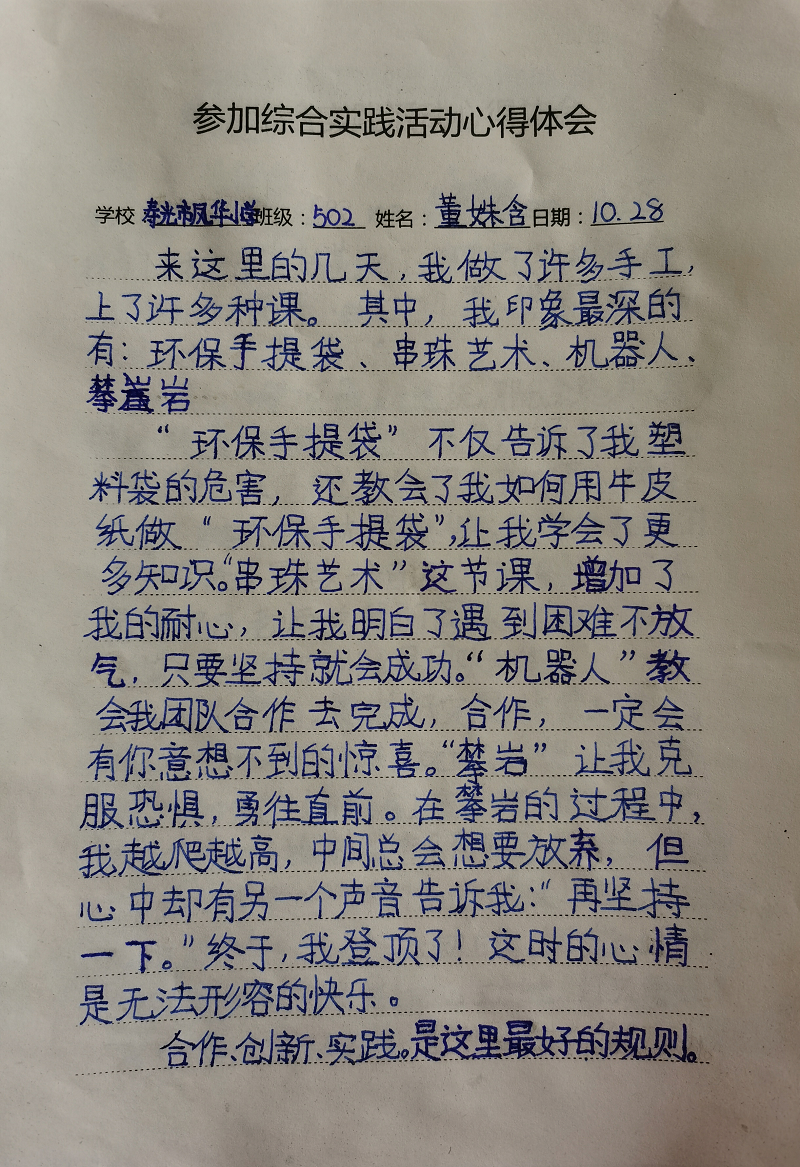 参加综合实践活动心得体会
学校：寿光市凤华小学班级：502 姓名：董姝含日期：10.28
来这里的几天，我做了许多手工，
上了许多种课。 其中，我印象最深的
有：环保手提袋、串珠艺术、机器人、
攀岩
“环保手提袋”不仅告诉了我塑
料袋的危害，还教会了我如何用牛皮
纸做“环保手提袋”，让我学会了更
多知识。“串珠艺术”这节课，增加了
我的耐心，让我明白了遇到困难不放
气，只要坚持就会成功。“机器人”教
会我团队合作去完成，合作，一定会
有你意想不到的惊喜。“攀岩”让我克
服恐惧，勇往直前。在攀岩的过程中，
我越爬越高，中间总会想要放弃，但
心中却有另一个声音告诉我：“再坚持
一下。”终于，我登顶了！这时的心情
是无法形容的快乐。
合作、创新、实践。是这里最好的规则。